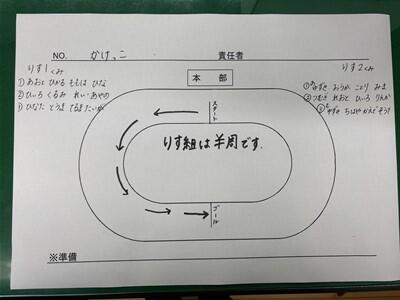 NO. かけっこ 責任者
りす1くみ
① あおと ひかる ももは ひな
② ひいろ くるみ れい あやの
③ ひなた とうま てるき たいが
りす2くみ
① なずき おうが ことり みま
② つむぎ れおと ひいろ りんか
③ ゆずき ちはや かえで そうす
本部
スタート
りす組は半周です。
ゴール
※準備